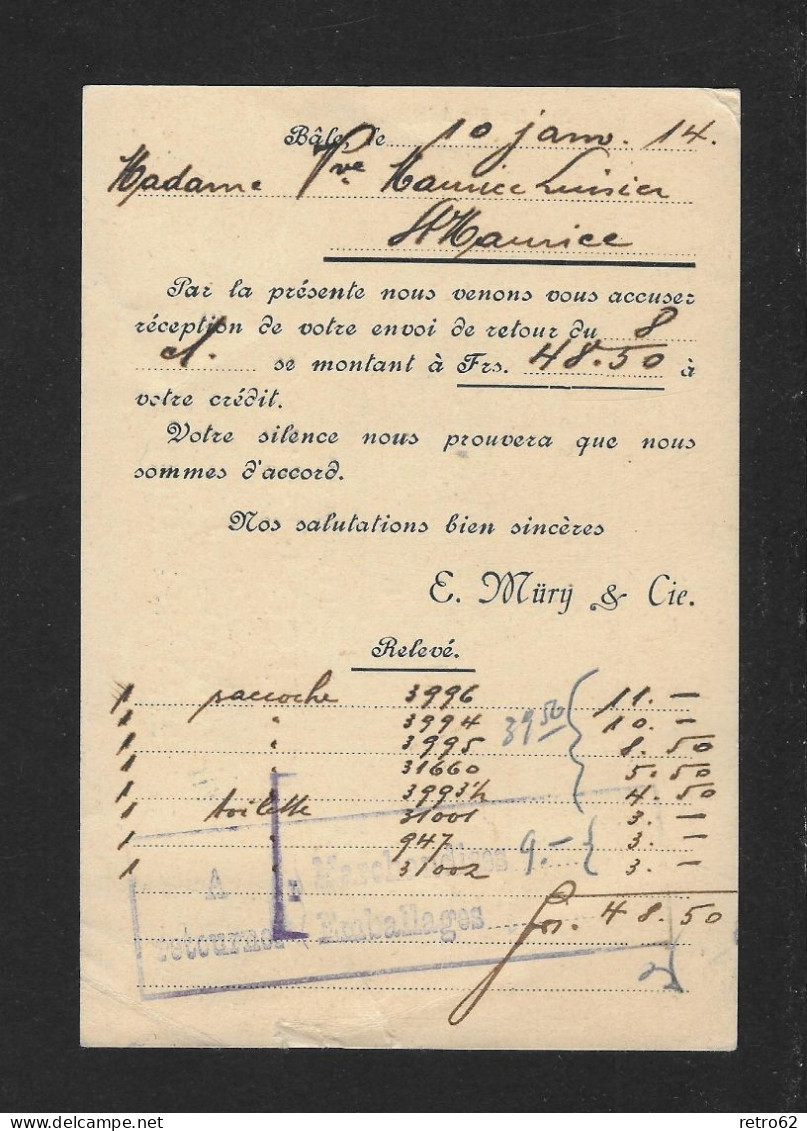 Bâle, le 10 janv. 14.
Madame Vve Maurice Luisier
St Maurice
Par la présente nous venons vous accuser
réception de votre envoi de retour du 8
ct. se montant à Frs. 48.50 à
votre crédit.
Votre silence nous prouvera que nous
sommes d'accord.
Nos salutations bien sincères
E. Müry & Cie.
Relevé.
1 saccoche 3996 11.—
1 " 3994 10.—
1 " 3995 39 50 8.50
1 " 31660 5.50
1 " 3993½ 4.50
1 toilette 31001 3.—
1 " 947 9.— 3.—
1 " 31002 3.—
A Marchandises
retourner Emballages
frs. 48.50
retro62